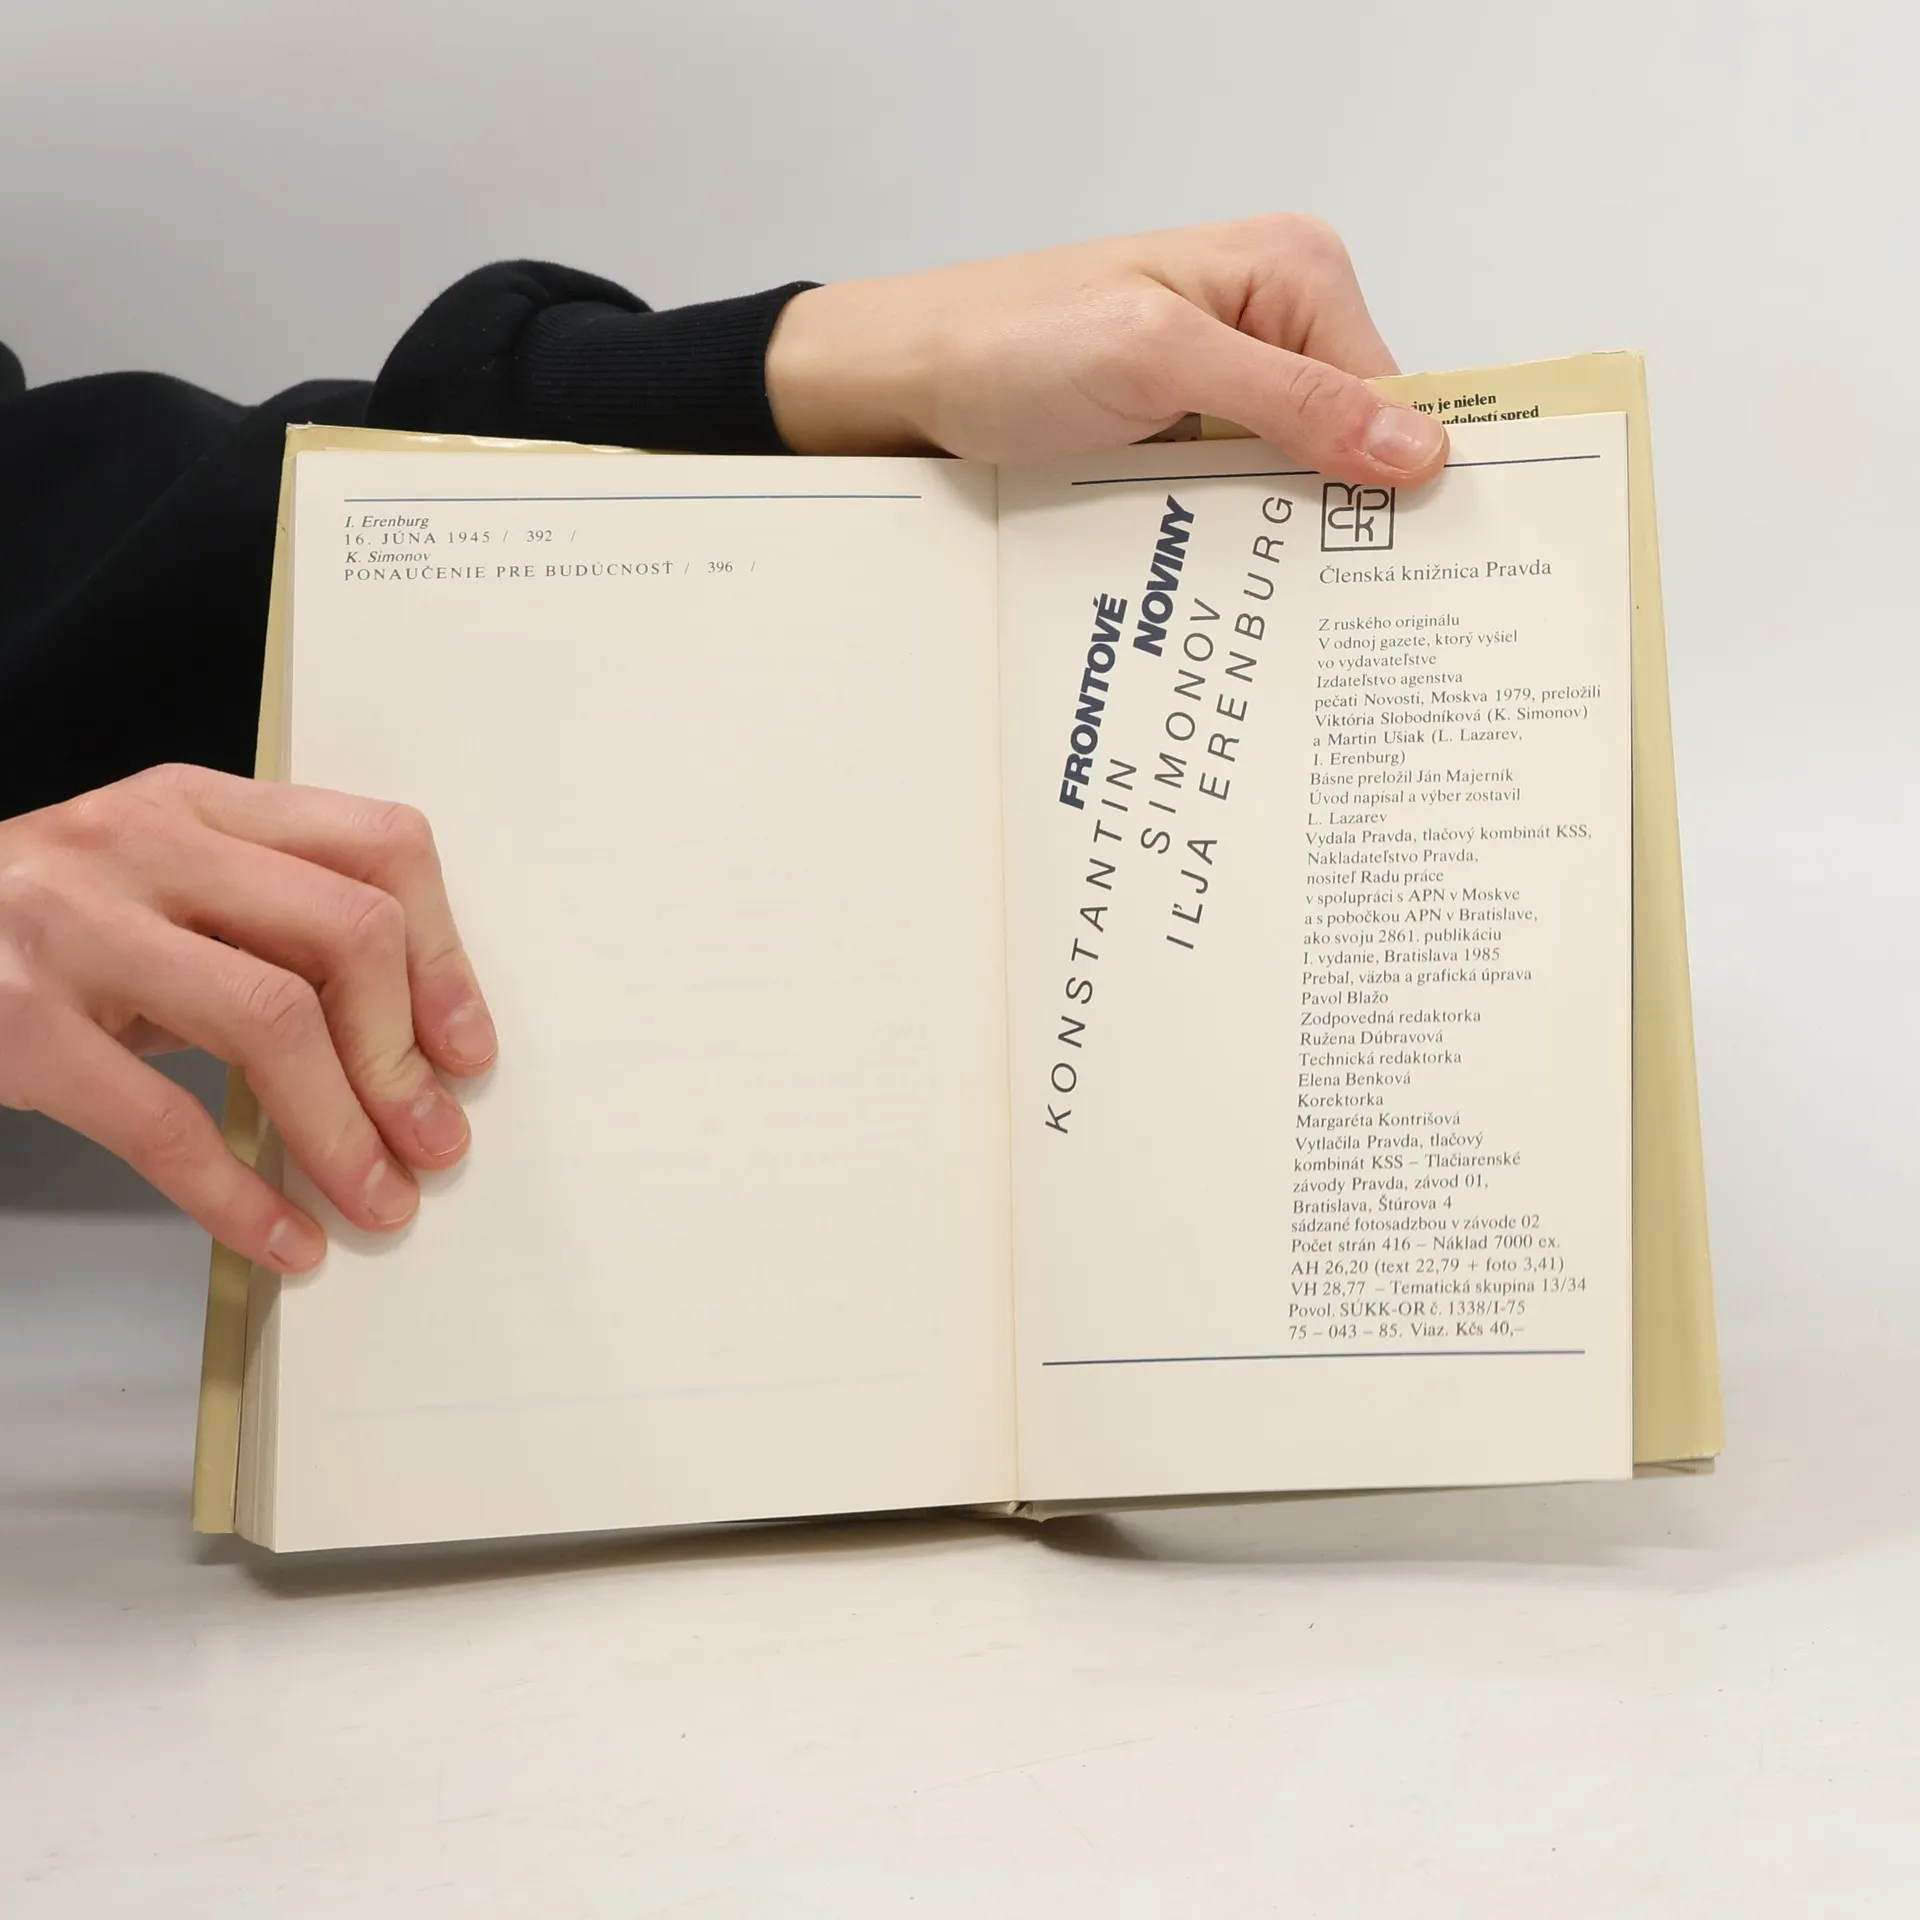 I. Erenburg
16. JÚNA 1945 / 392 /
K. Simonov
PONAUČENIE PRE BUDÚCNOSŤ / 396 /
je nielen
spred
FRONTOVÉ
NOVINY
KONSTANTIN
SIMONOV
IĽJA ERENBURG
Členská knižnica Pravda
Z ruského originálu
V odnoj gazete, ktorý vyšiel
vo vydavateľstve
Izdateľstvo agenstva
pečati Novosti, Moskva 1979, preložili
Viktória Slobodníková (K. Simonov)
a Martin Ušiak (L. Lazarev,
I. Erenburg)
Básne preložil Ján Majerník
Úvod napísal a výber zostavil
L. Lazarev
Vydala Pravda, tlačový kombinát KSS,
Nakladateľstvo Pravda,
nositeľ Radu práce
v spolupráci s APN v Moskve
a s pobočkou APN v Bratislave,
ako svoju 2861. publikáciu
I. vydanie, Bratislava 1985
Prebal, väzba a grafická úprava
Pavol Blažo
Zodpovedná redaktorka
Ružena Dúbravová
Technická redaktorka
Elena Benková
Korektorka
Margaréta Kontrišová
Vytlačila Pravda, tlačový
kombinát KSS – Tlačiarenské
závody Pravda, závod 01,
Bratislava, Štúrova 4
sádzané fotosadzbou v závode 02
Počet strán 416 – Náklad 7000 ex.
AH 26,20 (text 22,79 + foto 3,41)
VH 28,77 – Tematická skupina 13/34
Povol. SÚKK-OR č. 1338/I-75
75 – 043 – 85. Viaz. Kčs 40,–